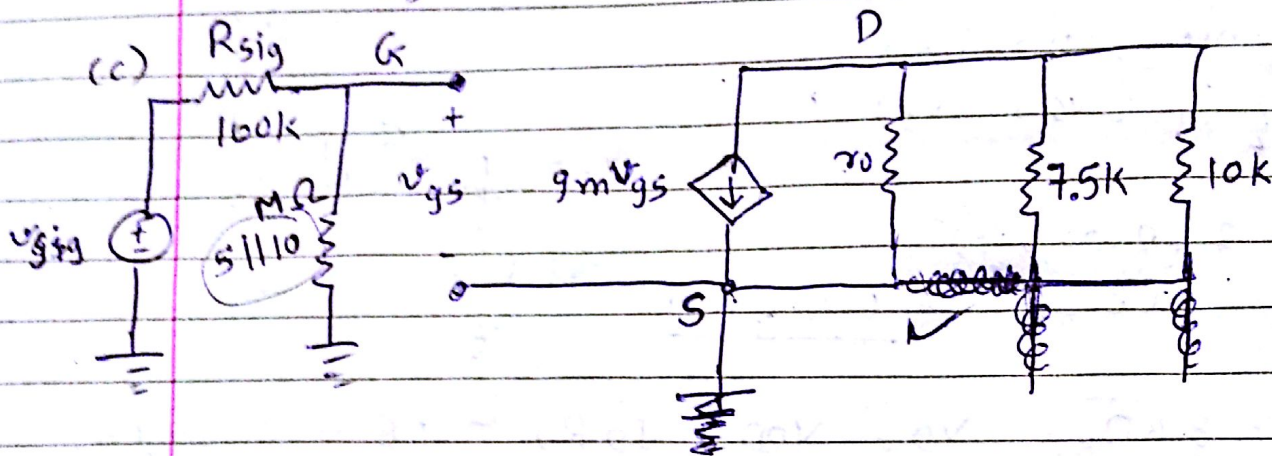 (c) Rsig G D
100k
+
MΩ
vsig ± 5||10 vgs gmvgs ro 7.5K 10K
-
S